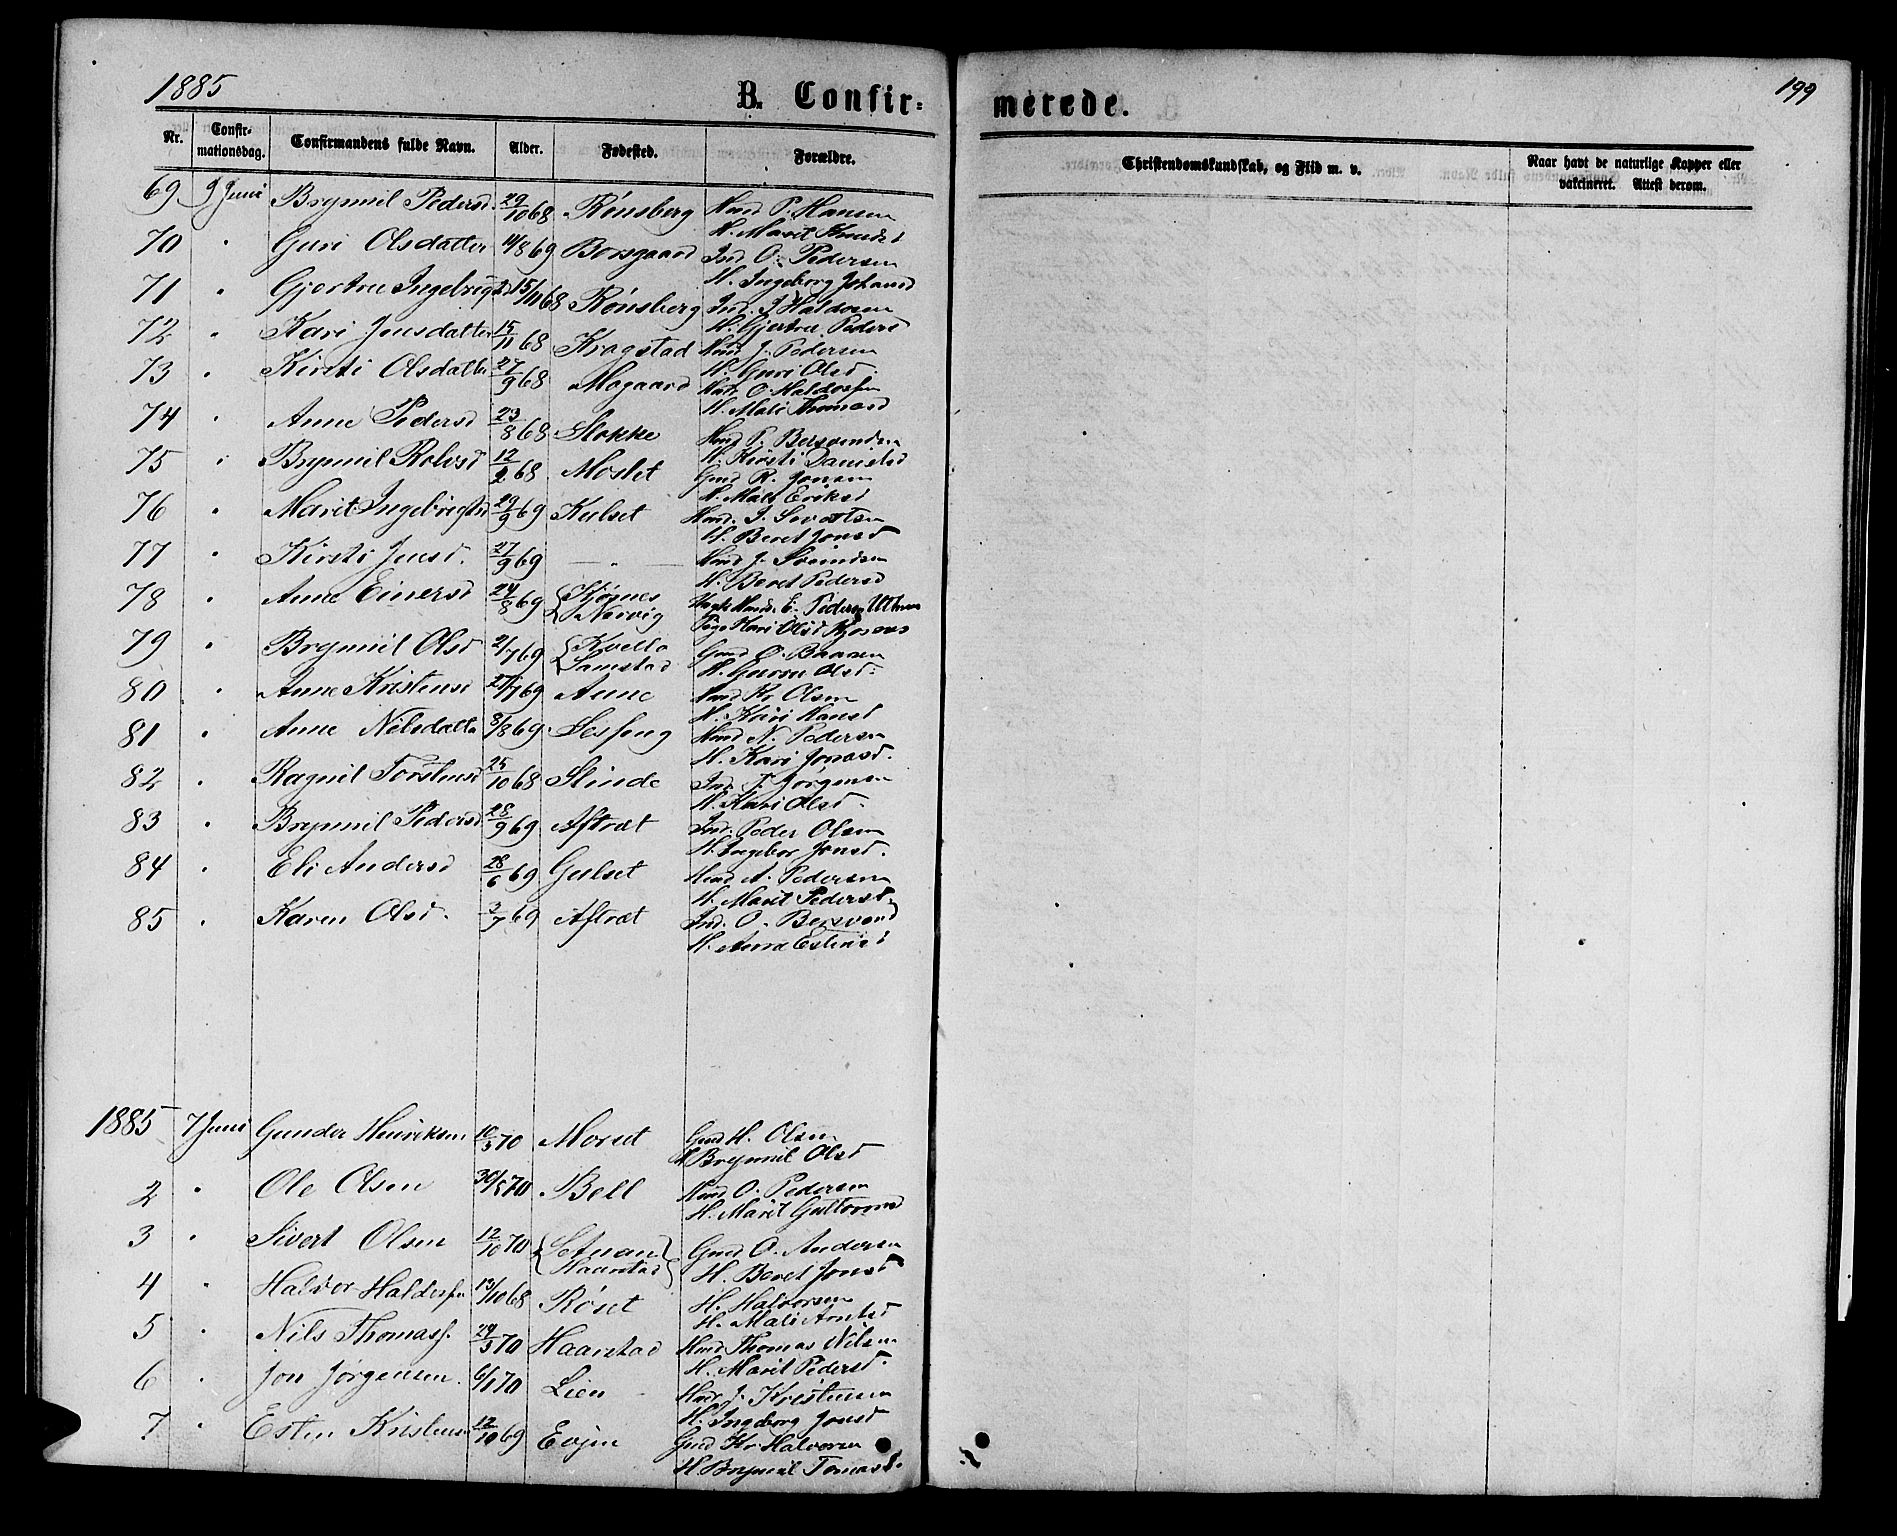 1885
B. Confir-
merede.
199
Nr. Confirmationsdag. Confirmandens fulde Navn. Alder. Fødested. Forældre.
Christendomskundskab, og Flid m. v.
Naar havt de naturlige Kopper eller vakcineret. Attest derom.
69 9 Juni Brynnil Pedersd. 29/10 68 Rønsberg Hmd P. Hansen
H. Marit Knudsd
70 " Guri Olsdatter 11/8 69 Borsgaard Ind. O. Pedersen
H. Ingeborg Johansd
71 " Gjertru Ingebrigtsd 15/10 68 Rønsberg Ind. I Haldorsen
H. Gjertru Pedersd
72 " Kari Jensdatter 15/11 68 Kragstad Hmd J. Pedersen
H. Guri Olsd.
73 " Kirsti Olsdatter 27/9 68 Mogaard O. Haldorsen
H. Mali Thomasd
74 " Anne Pedersd 23/8 68 Stokke Hmd P. Bersvendsen
H. Kirsti Danielsd
75 " Brynnil Rolvsd 12/2 68 Moslet Gmd R. Jonsen
H. Mali Eriksd
76 " Marit Ingebrigtsd 29/9 69 Kulset Hmd. I.
H. Beret Jonsd
77 " Kirsti Jensd. 27/9 69 — " — Hmd J. Svendsen
H. Beret Pedersd
78 " Anne Einersd 24/8 69 {Kjønes Nervig E. Pedersen
Pige Kari Olsd
79 " Brynnil Olsd 21/7 69 {Kvello Samstad Gmd O.
H. Olsd.
80 " Anne Kristensd 27/7 69 Aune Hmd Kr. Olsen
H. Kari Hansd
81 " Anne Nilsdatter 8/8 69 Sesseng Hmd N. Pedersen
H. Kari Jonasd.
82 " Ragnil Torstensd 25/10 68 Slinde Ind. T. Jørgensen
H. Kari Olsd.
83 " Brynnil Pedersd 28/9 69 Aftret Ind. Peder Olsen
H. Ingebor Jonsd.
84 " Eli Andersd 28/6 69 Gulset Hmd A. Pedersen
H. Marit Pedersd
85 " Karen Olsd. 3/7 69 Aftret Ind. O. Bersvend
H. Anna Estensd
1885 7 Juni Gunder Henriksen 10/3 70 Morset Gmd H. Olsen
H Brynnil Olsd
2 " Ole Olsen 30/5 70 Bell Hmd O. Pedersen
H. Marit Guttormsd
3 " Sivert Olsen 12/10 70 {Setnan Haarstad} Gmd O. Andersen
H. Beret Jonsd
4 " Halvor Haldorsen 13/10 68 Røset H. Halvorsen
H. Mali Arntsd
5 " Nils Thomass. 29/3 70 Haarstad Hmd Thomas Nilsen
H. Marit Pedersd.
6 " Jon Jørgensen. 6/1 70 Lien Hmd J. Kristensen
H. Ingeborg Jonsd
7 " Esten Kristensen 12/10 69 Evjen Gmd Kr. Halvorsen
H. Brynnil Tomasd.